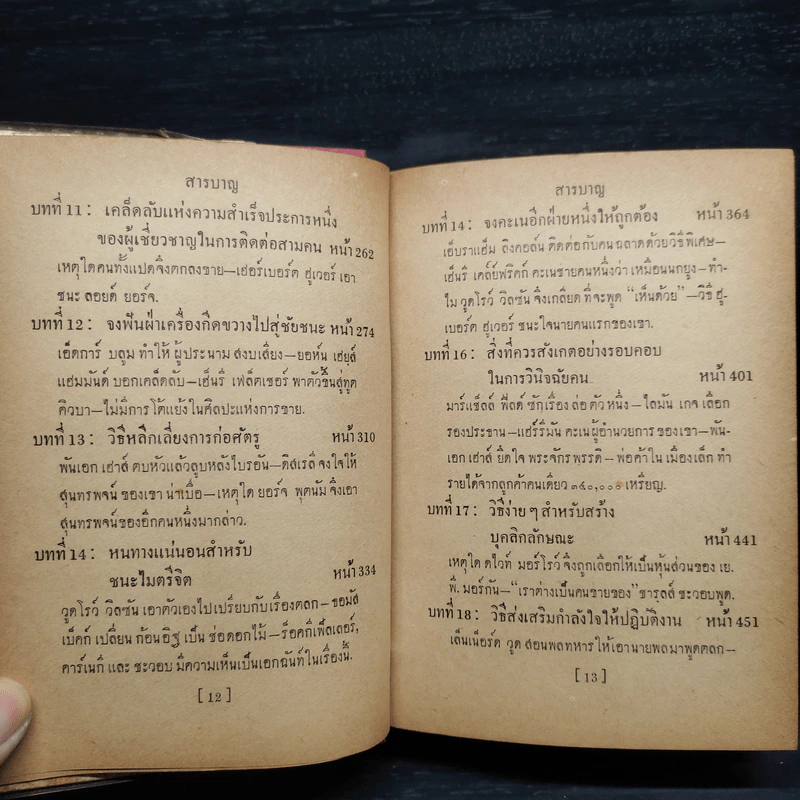 สารบาญ
บทที่ 11 : เคล็ดลับแห่งความสำเร็จประการหนึ่ง
ของผู้เชี่ยวชาญในการติดต่อสามคน หน้า 262
เหตุใดคนทั้งแปดจึงตกลงขาย—เฮอร์เบอร์ต ฮูเวอร์ เอา
ชนะ ลอยด์ ยอร์จ.
บทที่ 12 : จงฟันฝ่าเครื่องกีดขวางไปสู่ชัยชนะ หน้า 274
เอ็ดการ์ บลูม ทำให้ ผู้ประนาม สงบเสียง—ยอห์น เฮยส์
แฮมมันด์ บอกเคล็ดลับ—เฮ็นรี่ เฟล็ตเชอร์ พาตัวขึ้นสู่ทูต
คิวบา—ไม่มีการ โต้แย้งในศิลปะแห่งการขาย.
บทที่ 13 : วิธีหลีกเลี่ยงการก่อศัตรู หน้า 310
พันเอก เฮาส์ ตบหัวแล้วลูบหลังไบรอัน—ดิสเรลี จงใจให้
สุนทรพจน์ ของเขา น่าเบื่อ—เหตุใด ยอร์จ พุตนัม จึงเอา
สุนทรพจน์ของอีกคนหนึ่งมากล่าว.
บทที่ 14 : หนทางแน่นอนสำหรับ
ชนะไมตรีจิต หน้า 334
วูดโรว์ วิลซัน เอาตัวเองไปเปรียบกับเรื่องตลก—ธอมัส
เบ็คก์ เปลี่ยน ก้อนอิฐ เป็น ช่อดอกไม้—ร็อคกี้เฟ็ลเลอร์,
คาร์เนกี้ และ ชะวอบ มีความเห็นเป็นเอกฉันท์ในเรื่องนี้.
[ 12 ]
สารบาญ
บทที่ 14 : จงคะเนอีกฝ่ายหนึ่งให้ถูกต้อง หน้า 364
เอ็บราแฮ็ม ลิงคอล์น ติดต่อกับคน ฉลาดด้วยวิธีพิเศษ—
เฮ็นรี่ เคล์ย์ฟริคก์ คะเนชายคนหนึ่งว่า เหมือนนกยูง—ทำ-
ไม วูดโรว์ วิลซัน จึงเกลียด ที่จะพูด “เห็นด้วย”—วิธี ฮู-
เบอร์ต ฮูเวอร์ ชนะใจนายคนแรกของเขา.
บทที่ 16 : สิ่งที่ควรสังเกตอย่างรอบคอบ
ในการวินิจฉัยคน หน้า 401
มาร์แช็ลล์ ฟีลด์ ซักเรื่อง ล่อ ตัว หนึ่ง—ไลมัน เกจ เลือก
รองประธาน—แฮร์ริมัน คะเน ผู้อำนวยการ ของเขา—พัน-
เอก เฮาส์ ยึดใจ พระจักรพรรดิ—พ่อค้าใน เมืองเล็ก ทำ
รายได้จากลูกค้าคนเดียว ๓๔๐,๐๐๐ เหรียญ.
บทที่ 17 : วิธีง่าย ๆ สำหรับสร้าง
บุคลิกลักษณะ หน้า 441
เหตุใด ดไวท์ มอร์โรว์ จึงถูกเลือกให้เป็นหุ้นส่วนของ เย.
พี. มอร์กัน—“เราต่างเป็นคนขายของ” ชารฺลส์ ชะวอบพูด.
บทที่ 18 : วิธีส่งเสริมกำลังใจให้ปฏิบัติงาน หน้า 451
เล็นเน็อร์ด วูด สอนพลทหารให้เอานายพลมาพูดตลก—
[ 13 ]